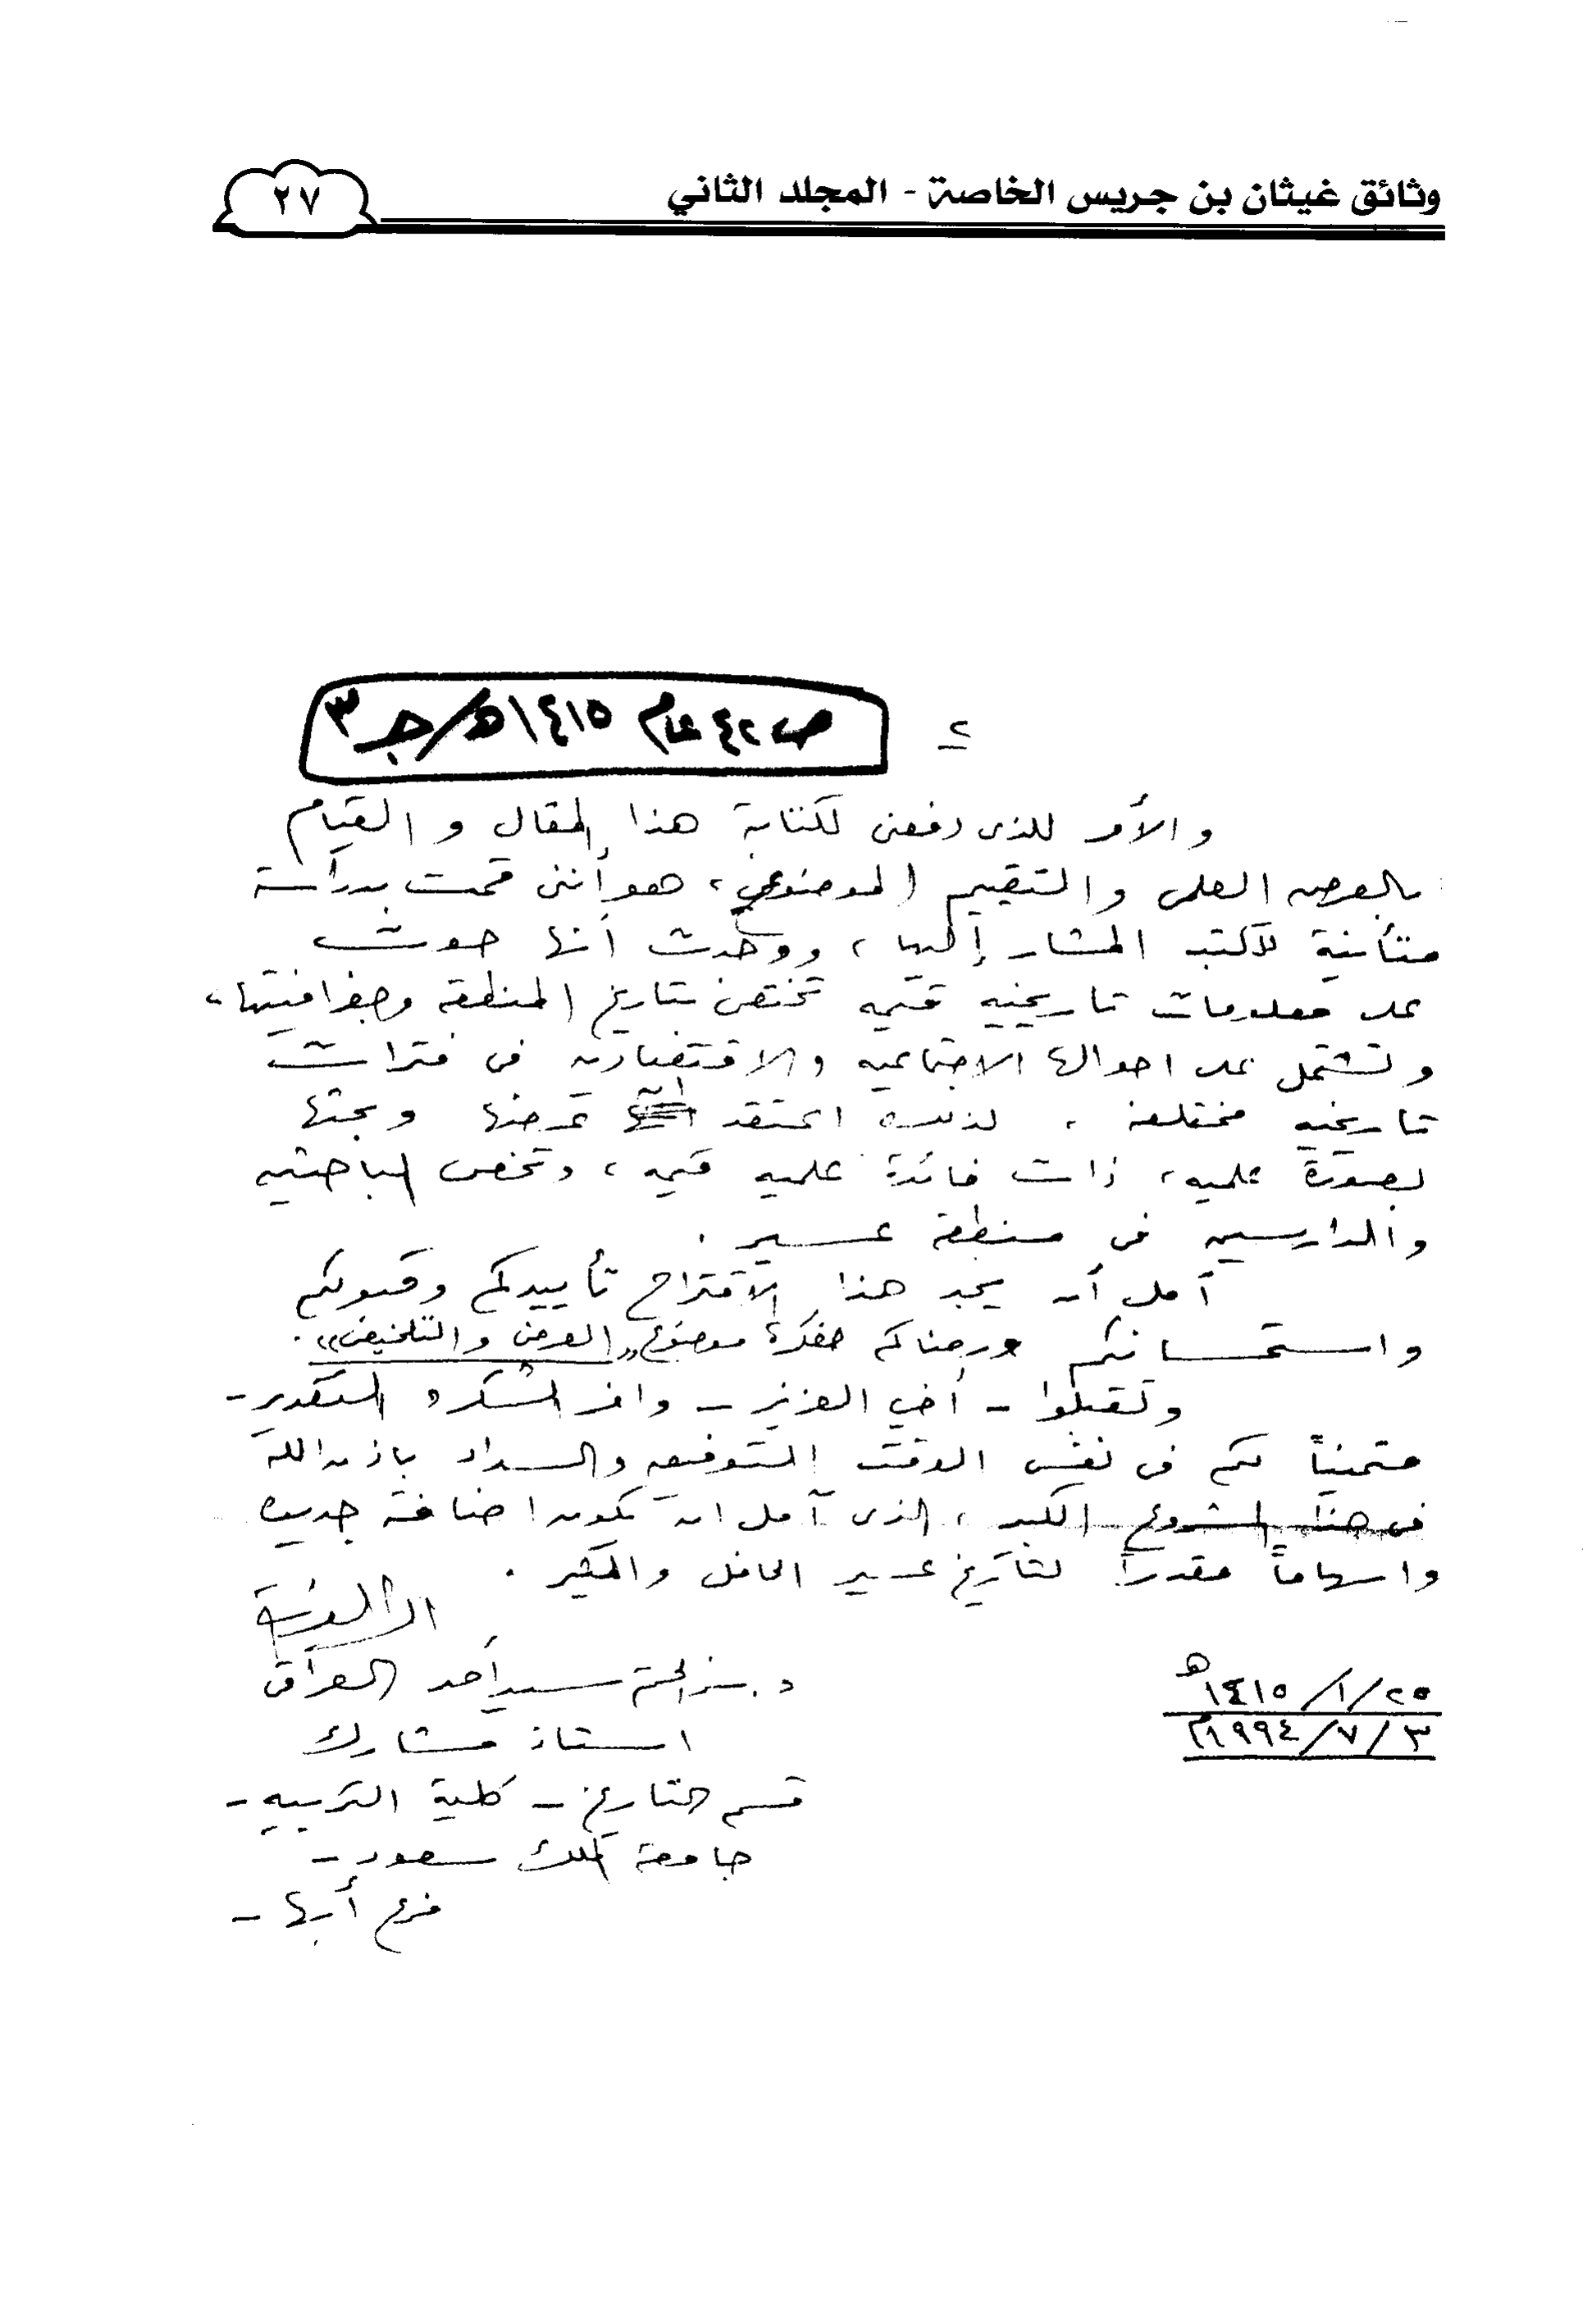 وثائق غيثان بن جريس الخاصة - المجلد الثاني
٢٧
ص ٤٢ عام ١٤١٥هـ/جـ٣
٢
والأمر الذى دفعنى لكتابة هذا المقال و القيام
بالعرض العلمى والتقييم الموضوعى، هو أننى قمت بدراسة
متأنية للكتب المشار إليها، ووجدت أنها حوت
على معلومات تاريخيه قيمه تختص بتاريخ المنطقة وجغرافيتها،
وتشتمل على احوالها الاجتماعيه والاقتصاديه فى فترات
تاريخيه مختلفه، لذلك اعتقد أن عرضها وبحثها
بصورة علميه، ذات فائدة علميه قيمه، وتخص الباحثين
والدارسين فى منطقة عسير.
آمل أن يجد هذا الاقتراح تأييدكم وقبولكم
واستحسانكم ورضاكم لفكرة موضوع «العرض والتلخيص».
وتقبلوا - أخي العزيز - وافر الشكر و التقدير -
متمنياً لكم فى نفس الوقت التوفيق والسداد باذن الله
فى هذا المشروع الكبير، الذى آمل ان يكون اضافة جديده
واسهاماً مقدراً لتاريخ عسير الحافل والمثير.
د. سيد أحمد العراقى
استاذ مشارك
قسم التاريخ - كلية التربيه -
جامعة الملك سعود -
فرع أبها -
٢٥/١/١٤١٥هـ
٣/٧/١٩٩٤م